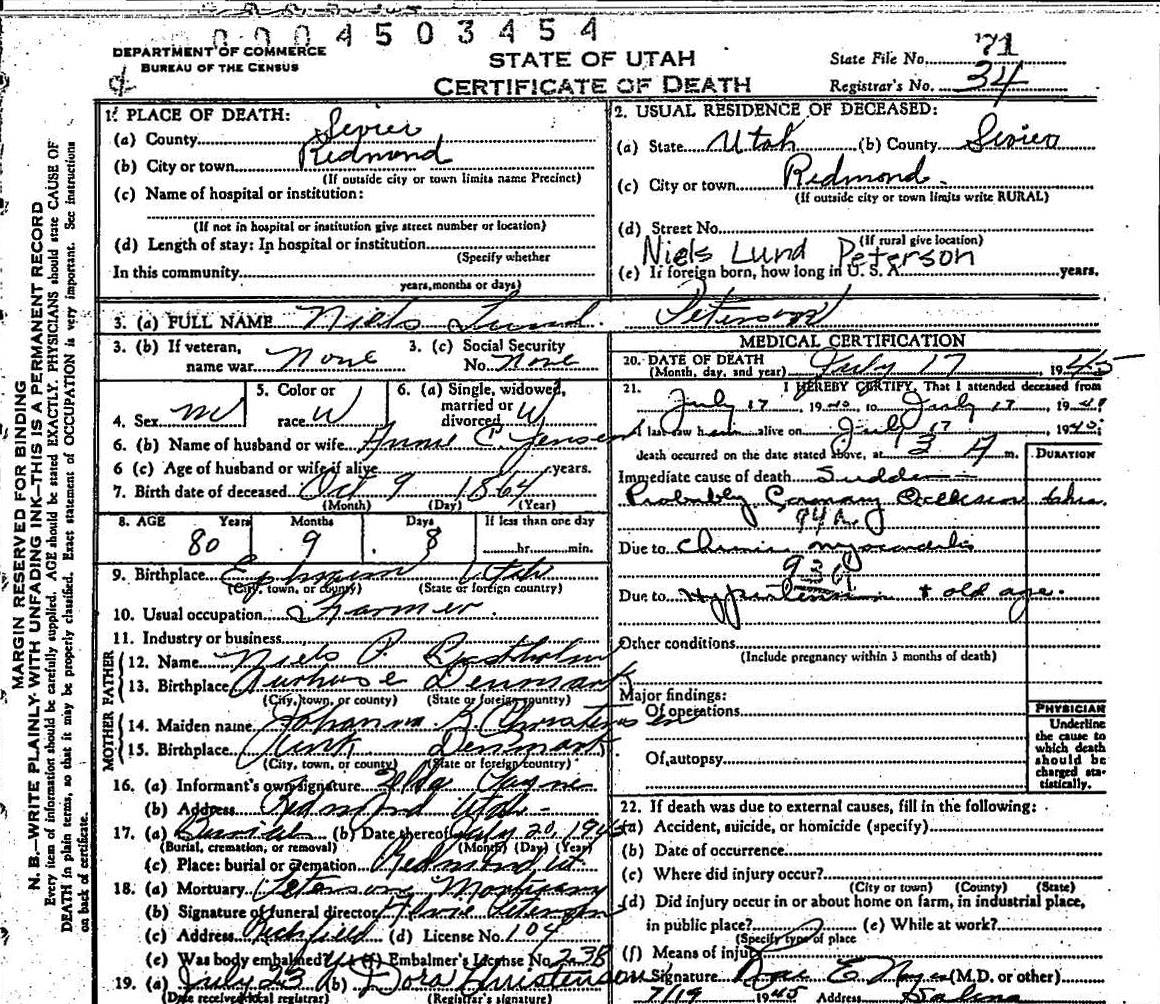 0004503454
DEPARTMENT OF COMMERCE
BUREAU OF THE CENSUS
STATE OF UTAH
CERTIFICATE OF DEATH
State File No. 71
Registrar's No. 34
MARGIN RESERVED FOR BINDING
N. B.—WRITE PLAINLY WITH UNFADING INK—THIS IS A PERMANENT RECORD
Every item of information should be carefully supplied. AGE should be stated EXACTLY. PHYSICIANS should state CAUSE OF
DEATH in plain terms, so that it may be properly classified. Exact statement of OCCUPATION is very important. See instructions
on back of certificate.
1. PLACE OF DEATH:
(a) County Sevier
(b) City or town Redmond
(If outside city or town limits name Precinct)
(c) Name of hospital or institution:
(If not in hospital or institution give street number or location)
(d) Length of stay: In hospital or institution
(Specify whether
In this community
years, months or days)
2. USUAL RESIDENCE OF DECEASED:
(a) State Utah (b) County Sevier
(c) City or town Redmond
(If outside city or town limits write RURAL)
(d) Street No.
(If rural give location)
Niels Lund Peterson
(e) If foreign born, how long in U. S. A. years.
3. (a) FULL NAME Niels Lund Peterson
3. (b) If veteran, name war None
3. (c) Social Security No. None
4. Sex M
5. Color or race W
6. (a) Single, widowed, married or divorced W
6. (b) Name of husband or wife Annie C Jensen
6 (c) Age of husband or wife if alive years.
7. Birth date of deceased Oct 9 1864
(Month) (Day) (Year)
8. AGE Years Months Days If less than one day
80 9 8 hr. min.
9. Birthplace Ephraim Utah
(City, town, or county) (State or foreign country)
10. Usual occupation Farmer
11. Industry or business
FATHER
12. Name Niels P
13. Birthplace Denmark
(City, town, or county) (State or foreign country)
MOTHER
14. Maiden name Christensen
15. Birthplace Denmark
(City, town, or county) (State or foreign country)
16. (a) Informant's own signature
(b) Address Redmond Utah
17. (a) Burial (b) Date thereof July 20, 1945
(Burial, cremation, or removal) (Month) (Day) (Year)
(c) Place: burial or cremation Redmond Ut
18. (a) Mortuary Peterson Mortuary
(b) Signature of funeral director Peterson
(c) Address Richfield (d) License No. 104
(e) Was body embalmed? (f) Embalmer's License No. 238
19. (a) July 23 (b) Dora Christenson
(Date received local registrar) (Registrar's signature)
MEDICAL CERTIFICATION
20. DATE OF DEATH July 17 1945
(Month, day, and year)
21. I HEREBY CERTIFY, That I attended deceased from
July 17, 1945, to July 17, 19
I last saw h alive on July 17 1945;
death occurred on the date stated above, at 3 A m.
DURATION
Immediate cause of death Sudden
Probably Coronary Occlusion
94A
Due to Chronic myocarditis
93
Due to Hypertension + old age.
Other conditions
(Include pregnancy within 3 months of death)
Major findings:
Of operations
Of autopsy
PHYSICIAN
Underline
the cause to
which death
should be
charged sta-
tistically.
22. If death was due to external causes, fill in the following:
(a) Accident, suicide, or homicide (specify)
(b) Date of occurrence
(c) Where did injury occur?
(City or town) (County) (State)
(d) Did injury occur in or about home on farm, in industrial place,
in public place? (e) While at work?
(Specify type of place
(f) Means of injury
Signature Rae E Noyes (M.D. or other)
7/19 1945 Address Salina